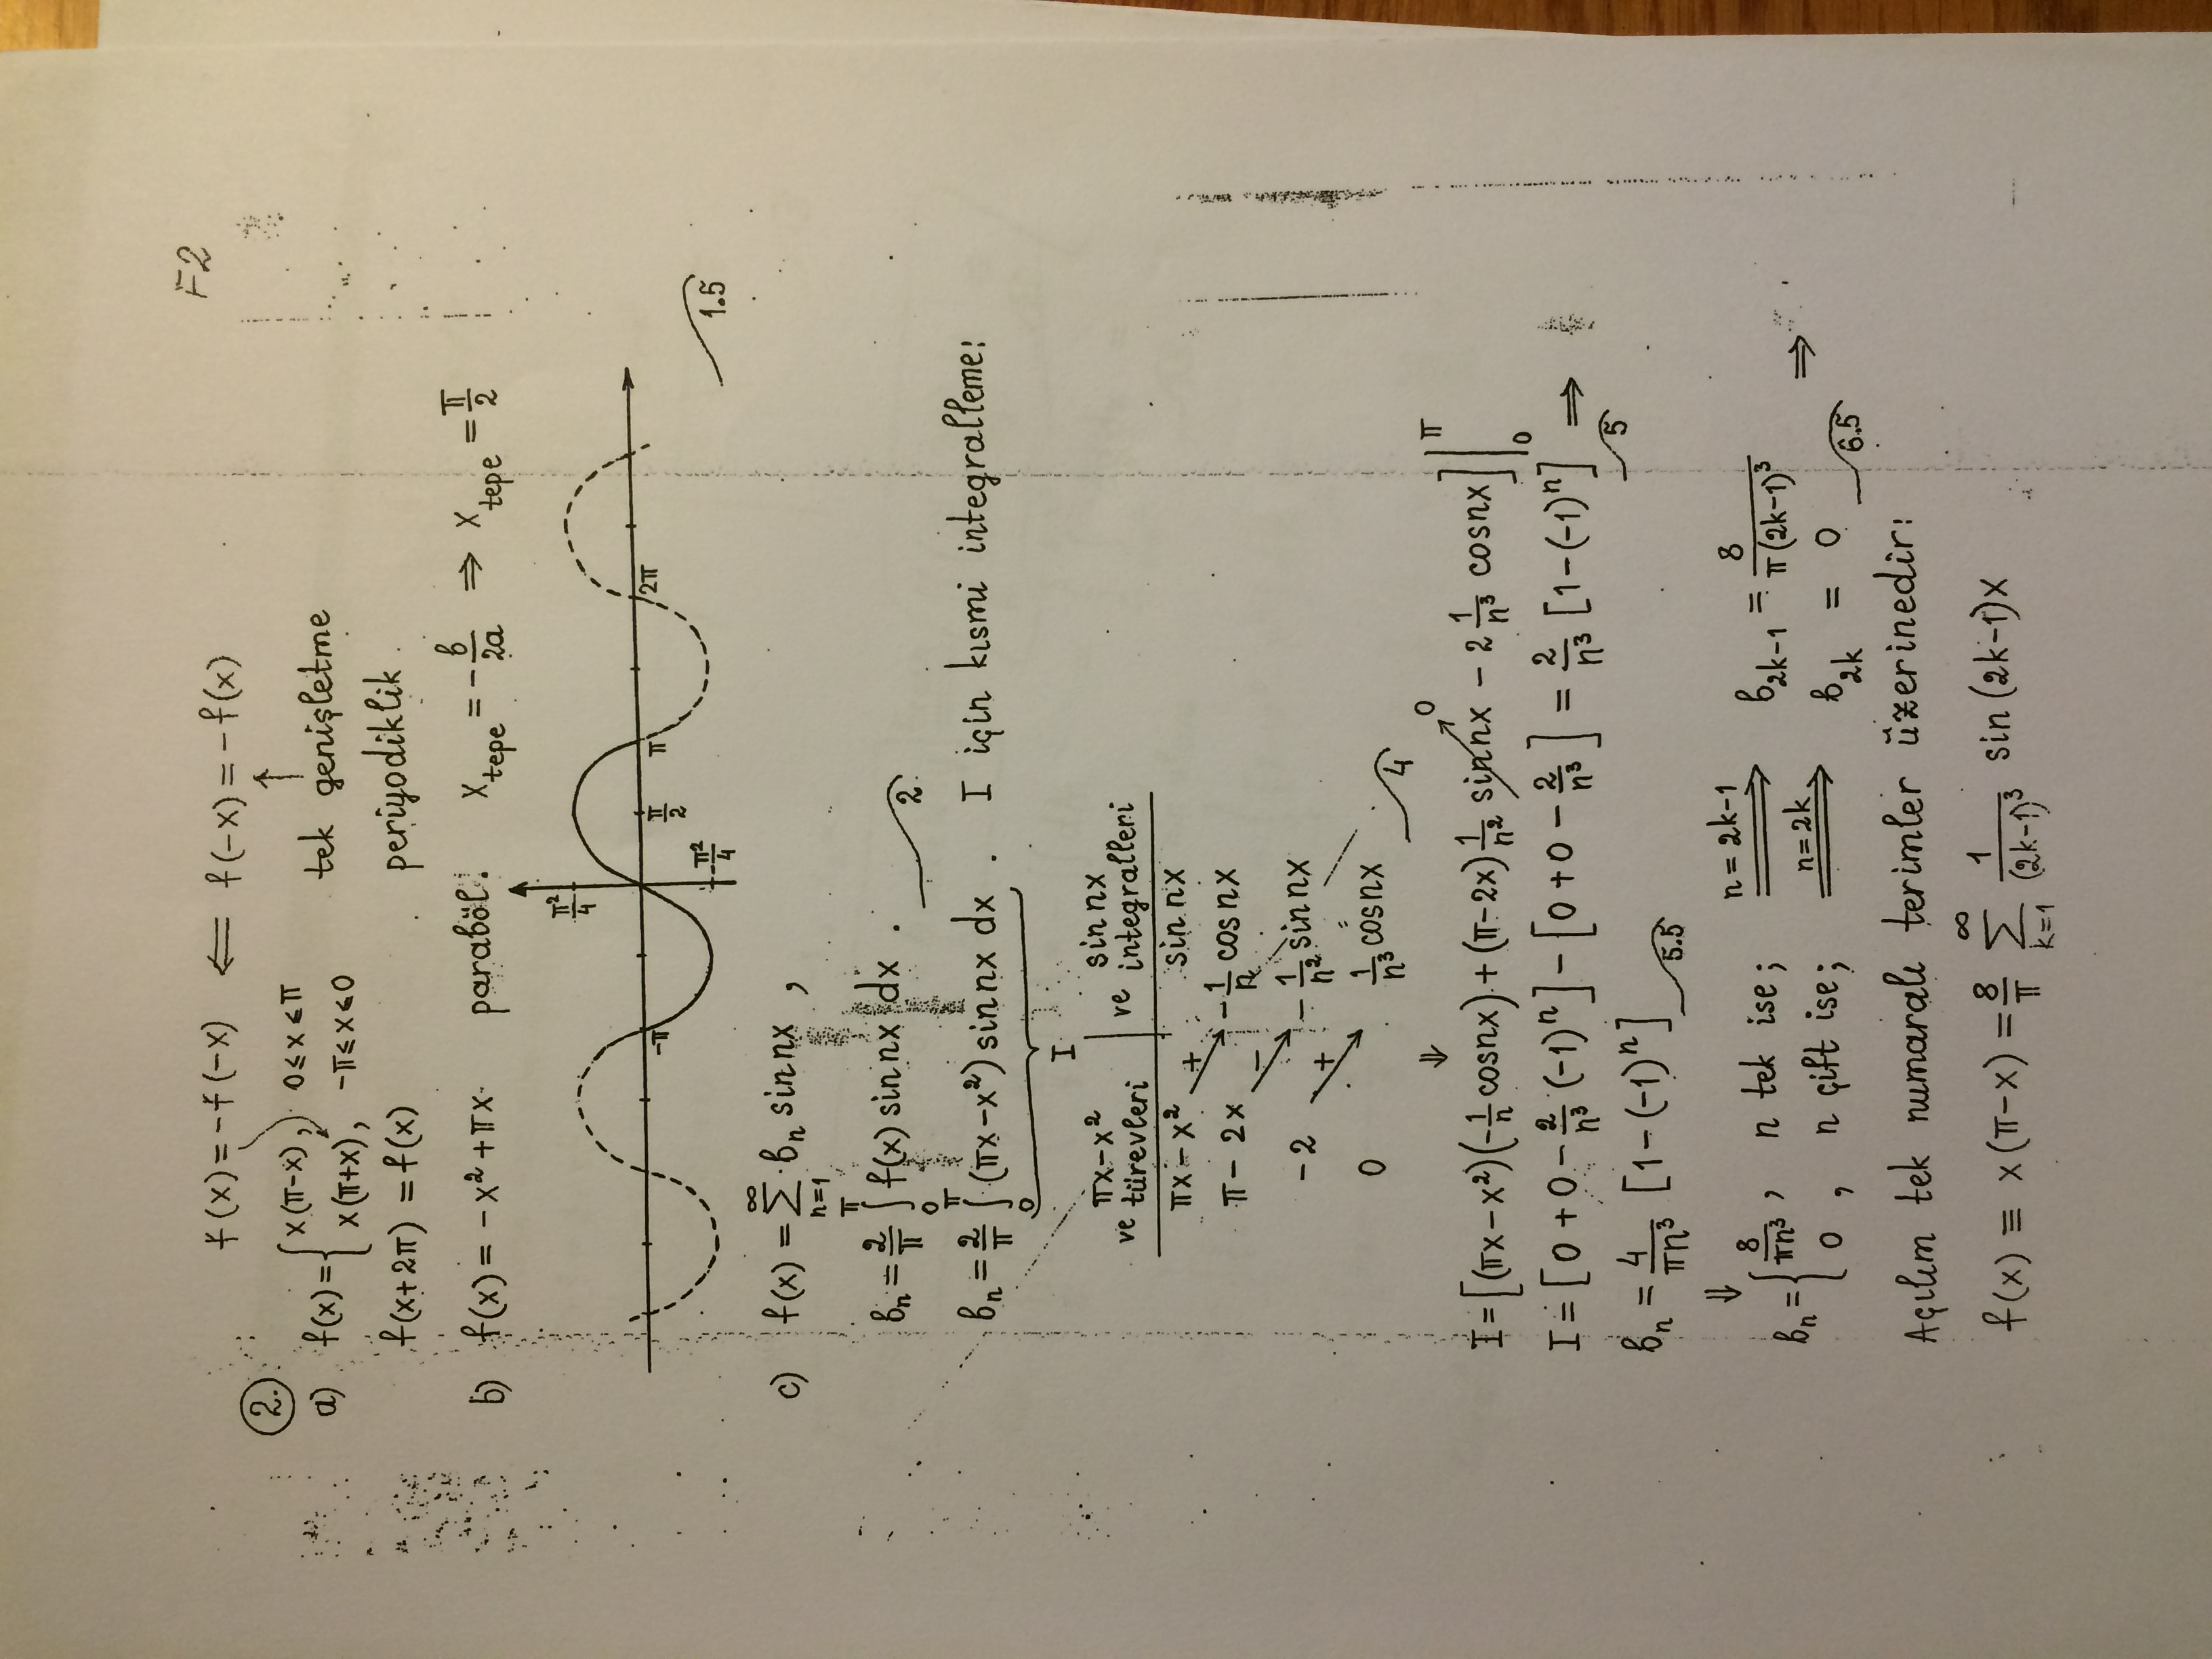 F2
f(x) = -f(-x) ⇐ f(-x) = -f(x)
2.
a) f(x) = { x(π-x), 0≤x≤π
x(π+x), -π≤x≤0
tek genişletme
f(x+2π) = f(x) periyodiklik.
b) f(x) = -x² + πx paraböl! x_tepe = -b/2a ⇒ x_tepe = π/2
π²/4
-π π/2 π 2π
-π²/4
1.5
c) f(x) = ∑_{n=1}^{∞} b_n sin nx ,
b_n = 2/π ∫_0^π f(x) sin nx dx .
2
b_n = 2/π ∫_0^π (πx-x²) sin nx dx . I için kısmi integralleme:
I
πx-x² ve türevleri | sin nx ve integralleri
πx-x² + sin nx
π-2x - -1/n cos nx
-2 + -1/n² sin nx
0 1/n³ cos nx
4
⇓
I = [(πx-x²)(-1/n cos nx) + (π-2x) 1/n² sin nx - 2 1/n³ cos nx] |_0^π
0
I = [0+0-2/n³ (-1)^n] - [0+0-2/n³] = 2/n³ [1-(-1)^n] ⇒
5
b_n = 4/πn³ [1-(-1)^n]
5.5
⇓
b_n = { 8/πn³ , n tek ise; n=2k-1 ⇒ b_{2k-1} = 8/π(2k-1)³
0 , n çift ise; n=2k ⇒ b_{2k} = 0 ⇒
6.5
Açılım tek numaralı terimler üzerinedir:
f(x) ≡ x(π-x) = 8/π ∑_{k=1}^{∞} 1/(2k-1)³ sin(2k-1)x